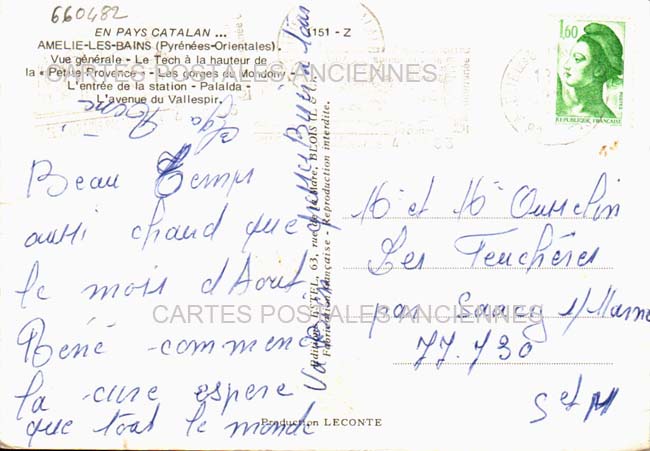 660482
EN PAYS CATALAN ...
AMELIE-LES-BAINS (Pyrénées-Orientales).
Vue générale - Le Tech à la hauteur de
la « Petite Provence » - Les gorges du Mondony -
L'entrée de la station - Palalda -
L'avenue du Vallespir.
151 - Z
1,60
POSTES
REPUBLIQUE FRANÇAISE
CARTES POSTALES ANCIENNES
Beau Temps
aussi chaud que
le mois d'Aout
René commence
la cure espere
que tout le monde
va bien
à tous
René
Editions ESTEL, 63, rue de la Mare, BLOIS
Fabrication Française - Reproduction interdite.
Production LECONTE
Mr et Me
Les Feuchères
par Saacy s/Marne
77.730
S et M
CARTES POSTALES ANCIENNES